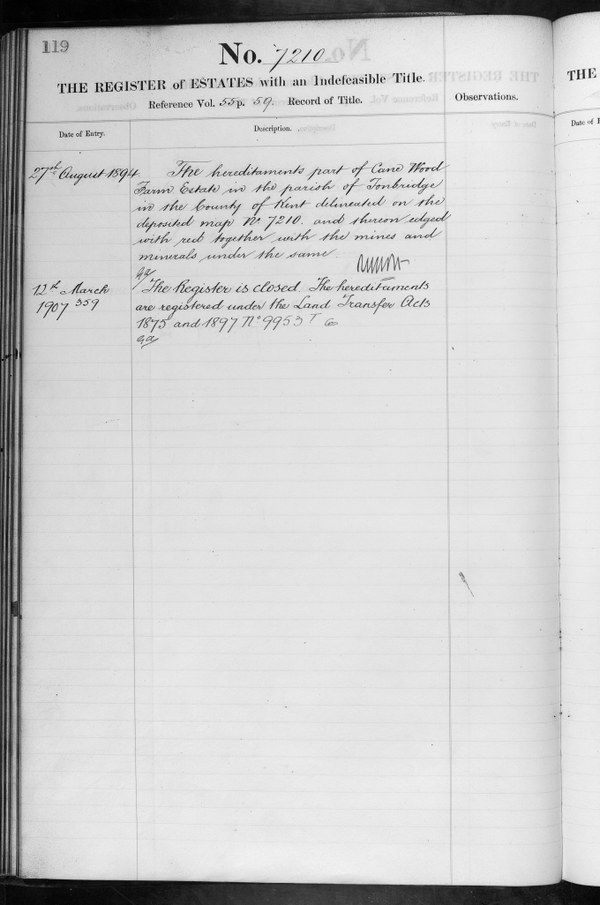 119
No. 7210.
THE REGISTER of ESTATES with an Indefeasible Title.
Reference Vol. 55 p. 59. Record of Title.
Observations.
Date of Entry.
Description.
27th August 1894
The hereditaments part of Cane Wood
Farm Estate in the parish of Tonbridge
in the County of Kent delineated on the
deposited map No. 7210. and thereon edged
with red together with the mines and
minerals under the same
12th March
1907 359
The Register is closed The hereditaments
are registered under the Land Transfer Acts
1875 and 1897 No 9953
THE
Date of